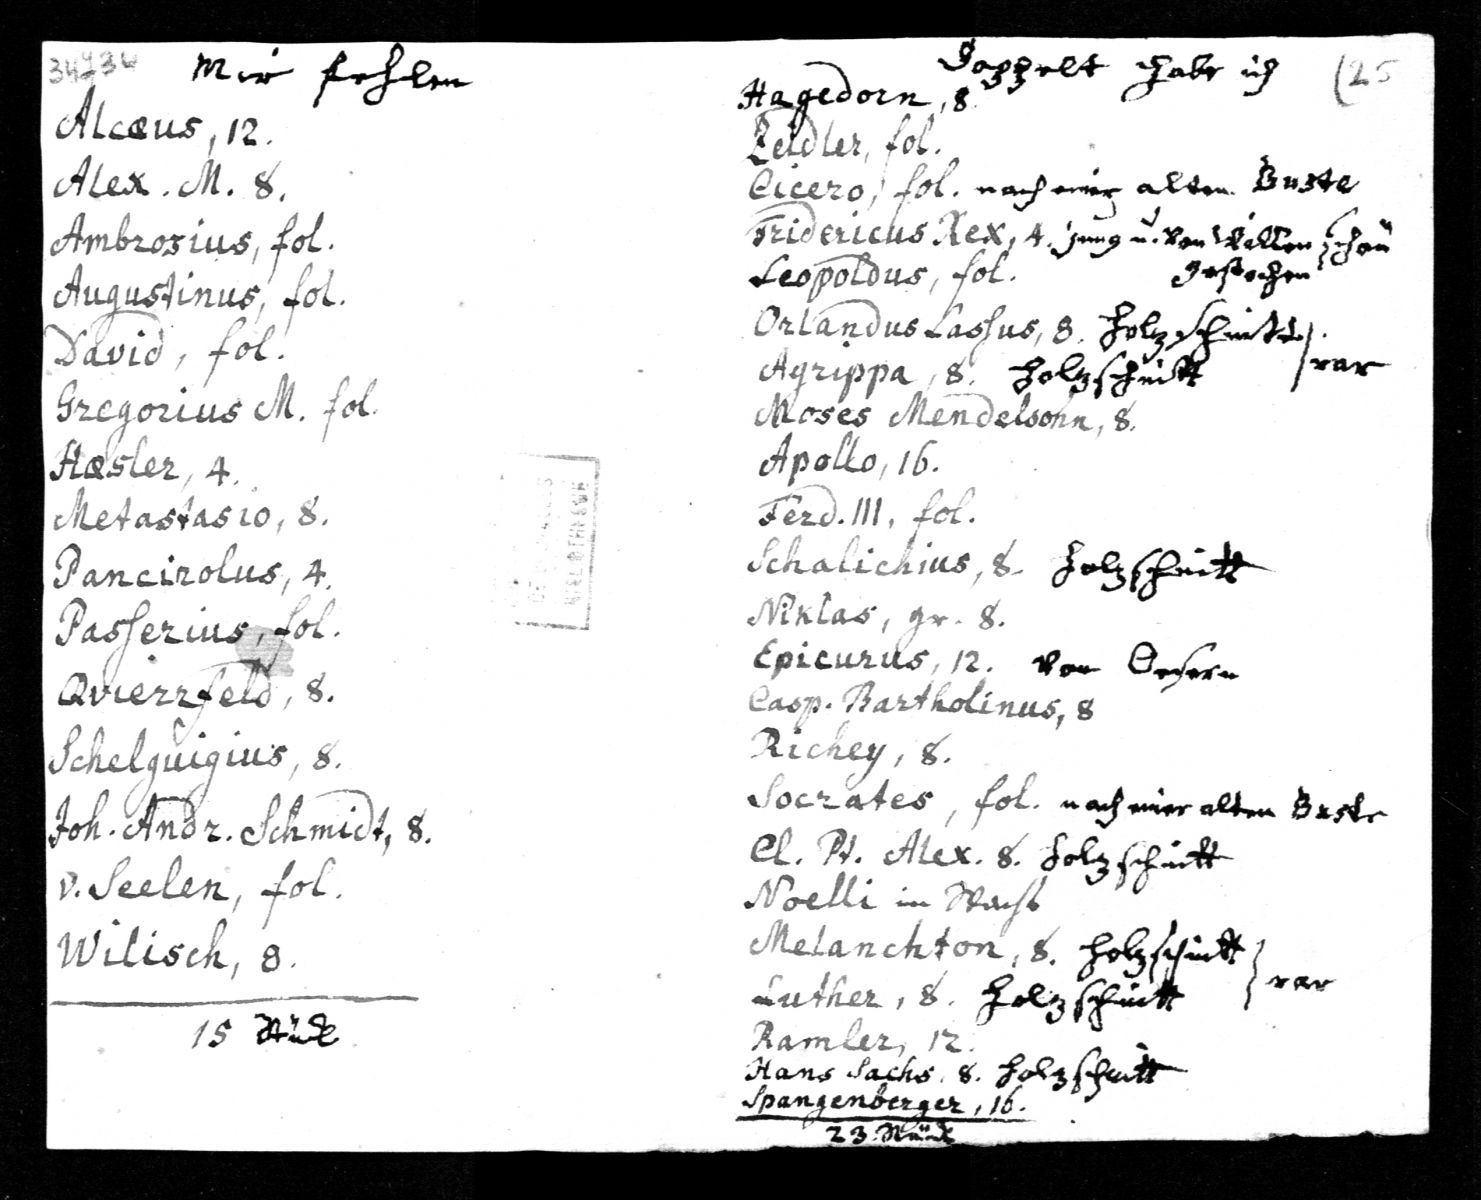 34736
Mir fehlen
Alcæus, 12.
Alex. M. 8.
Ambrosius, fol.
Augustinus, fol.
David, fol.
Gregorius M. fol.
Hæsler, 4.
Metastasio, 8.
Pancirolus, 4.
Passerius, fol.
Qvierrfeld, 8.
Schelguigius, 8.
Joh. Andr. Schmidt, 8.
v. Seelen, fol.
Wilisch, 8.
15 Stück
Doppelt habe ich
(25
Hagedorn, 8.
Zeidler, fol.
Cicero, fol. nach einer alten Buste
Fridericus Rex, 4. jung u. von Willen schön
gestochen
Leopoldus, fol.
Orlandus Lassus, 8. Holzschnitt
Agrippa, 8. Holzschnitt } rar
Moses Mendelsohn, 8.
Apollo, 16.
Ferd. III, fol.
Schalichius, 8. Holzschnitt
Niklas, gr. 8.
Epicurus, 12. von Oesern
Casp. Bartholinus, 8
Richey, 8.
Socrates, fol. nach einer alten Buste
Cl. Pt. Alex. 8. Holzschnitt
Noelli in Wachs
Melanchton, 8. Holzschnitt
Luther, 8. Holzschnitt } rar
Ramler, 12.
Hans Sachs, 8. Holzschnitt
Spangenberger, 16.
23 Stück